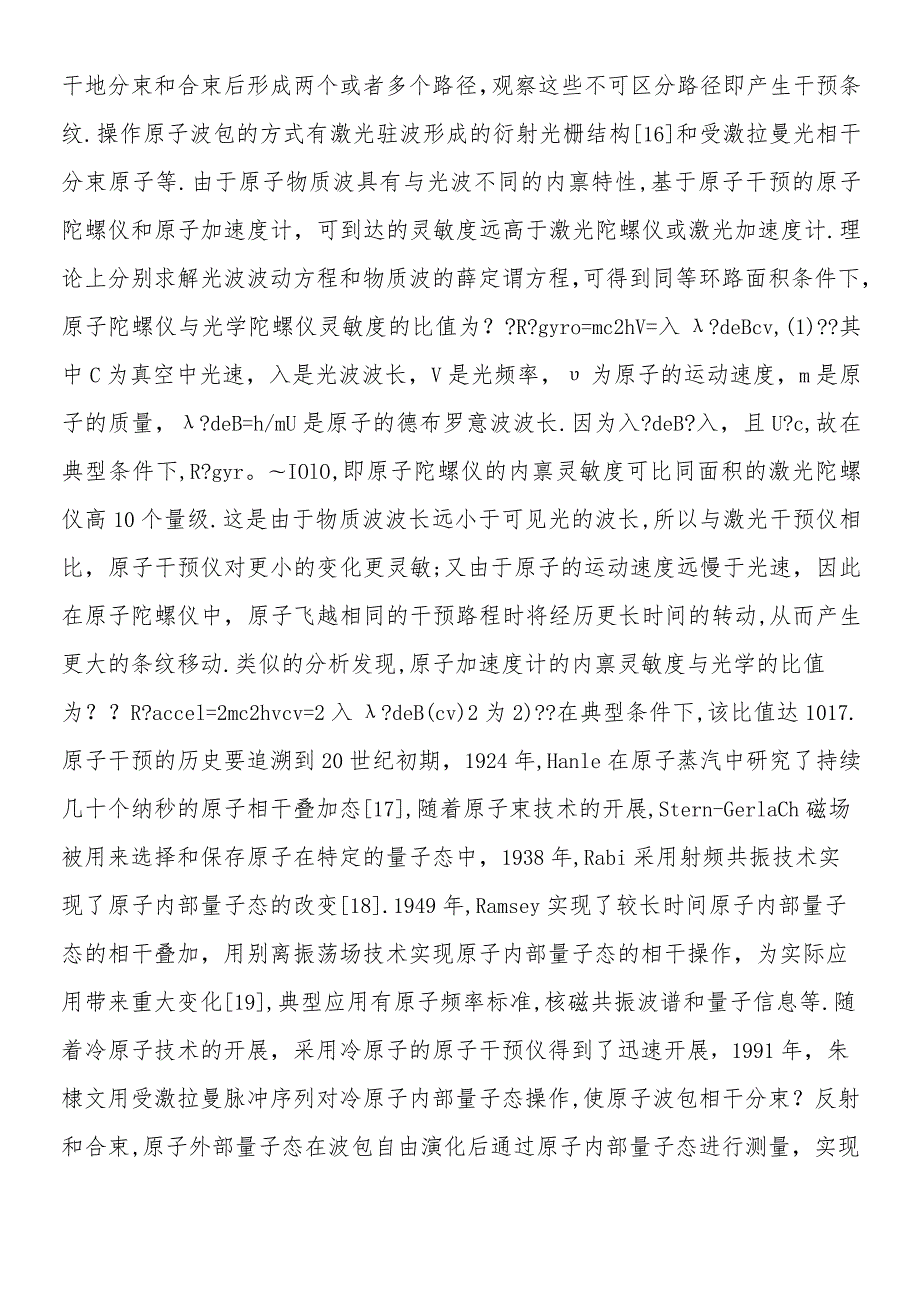 干地分束和合束后形成两个或者多个路径,观察这些不可区分路径即产生干预条
纹.操作原子波包的方式有激光驻波形成的衍射光栅结构[16]和受激拉曼光相干
分束原子等.由于原子物质波具有与光波不同的内禀特性,基于原子干预的原子
陀螺仪和原子加速度计，可到达的灵敏度远高于激光陀螺仪或激光加速度计.理
论上分别求解光波波动方程和物质波的薛定谓方程,可得到同等环路面积条件下,
原子陀螺仪与光学陀螺仪灵敏度的比值为？?R?gyro=mc2hV=入 λ?deBcv,(1)??其
中 C 为真空中光速，入是光波波长，V 是光频率，υ 为原子的运动速度，m 是原
子的质量，λ?deB=h/mU 是原子的德布罗意波波长.因为入?deB?入，且 U?c,故在
典型条件下,R?gyr。~IOlO,即原子陀螺仪的内禀灵敏度可比同面积的激光陀螺
仪高 10 个量级.这是由于物质波波长远小于可见光的波长,所以与激光干预仪相
比，原子干预仪对更小的变化更灵敏;又由于原子的运动速度远慢于光速，因此
在原子陀螺仪中，原子飞越相同的干预路程时将经历更长时间的转动,从而产生
更大的条纹移动.类似的分析发现,原子加速度计的内禀灵敏度与光学的比值
为？？R?accel=2mc2hvcv=2 入 λ?deB(cv)2 为 2)??在典型条件下,该比值达 1017.
原子干预的历史要追溯到 20 世纪初期，1924 年,Hanle 在原子蒸汽中研究了持续
几十个纳秒的原子相干叠加态[17],随着原子束技术的开展,Stern-GerlaCh 磁场
被用来选择和保存原子在特定的量子态中，1938 年,Rabi 采用射频共振技术实
现了原子内部量子态的改变[18].1949 年,Ramsey 实现了较长时间原子内部量子
态的相干叠加，用别离振荡场技术实现原子内部量子态的相干操作，为实际应
用带来重大变化[19],典型应用有原子频率标准,核磁共振波谱和量子信息等.随
着冷原子技术的开展，采用冷原子的原子干预仪得到了迅速开展，1991 年，朱
棣文用受激拉曼脉冲序列对冷原子内部量子态操作,使原子波包相干分束？反射
和合束,原子外部量子态在波包自由演化后通过原子内部量子态进行测量，实现